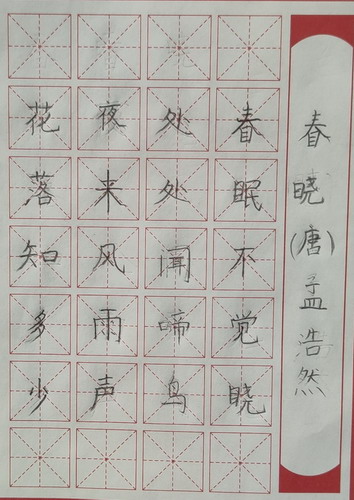 春晓(唐)孟浩然
春眠不觉晓
处处闻啼鸟
夜来风雨声
花落知多少